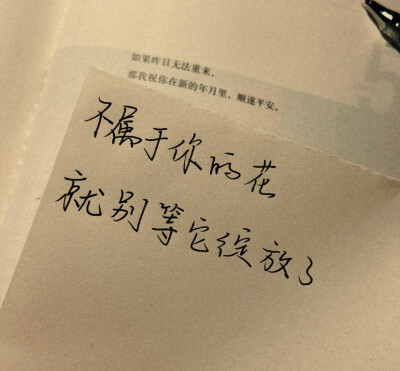 如果昨日无法重来，
那我祝你在新的年月里，顺遂平安。
不属于你的花
就别等它绽放了